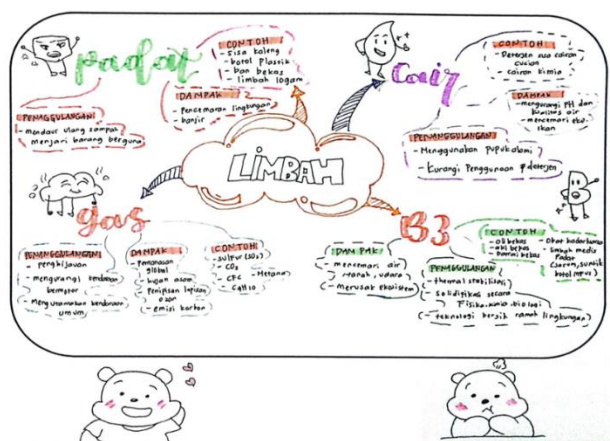 padat
CONTOH
- Sisa kaleng
- botol plastik
- ban bekas
- limbah logam
DAMPAK
- Pencemaran lingkungan
- banjir
PENAGGULANGAN
- mendaur ulang sampah
menjari barang berguna
Cair
CONTOH
- Detergen sisa cairan
cucian
- Cairan kimia
DAMPAK
- mengurangi PH dan
kualitas air
- mencemari
ikan
PENANGGULANGAN
- Menggunakan pupuk alami
- Kurangi Penggunaan detergen
LIMBAH
gas
PENANGGULANGAN
- penghijauan
- mengurangi kendaraan
bermotor
- Mengutamakan kendaraan
umum
DAMPAK
- Pemanasan
global
- hujan asam
- Penipisan lapisan
ozon
- emisi karbon
CONTOH
- sulfur (SO2)
- CO2
- CFC - Metana
- C4H10
B3
CONTOH
- oli bekas
- aki bekas
- baterai bekas
- Obat kadarluarsa
- limbah medis
Padat
(jarum, suntik
botol infus)
DAMPAK
- mencemari air
tanah, udara
- merusak ekosistem
PENAGGULANGAN
- thermal stabilisasi
- solidifikasi secara
fisika-kimia-biologi
- teknologi bersih ramah lingkungan